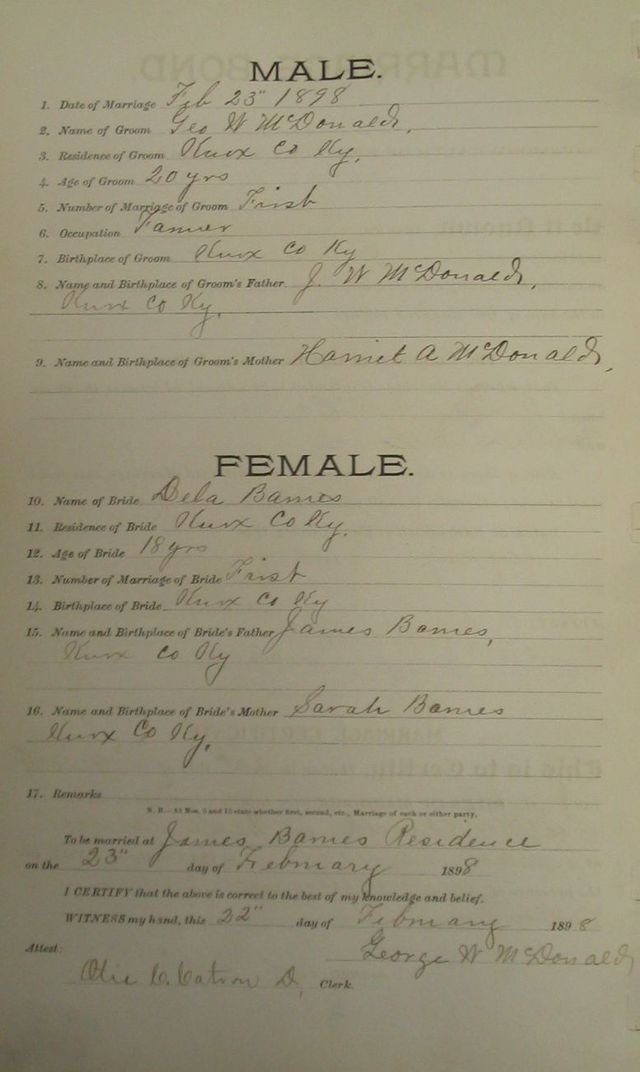 MALE.
1. Date of Marriage Feb 23" 1898
2. Name of Groom Geo W McDonald,
3. Residence of Groom Knox Co Ky,
4. Age of Groom 20 yrs
5. Number of Marriage of Groom First
6. Occupation Farmer
7. Birthplace of Groom Knox Co Ky
8. Name and Birthplace of Groom's Father J. W McDonald,
Knox Co Ky,
9. Name and Birthplace of Groom's Mother Harriet A McDonald,
FEMALE.
10. Name of Bride Dela Barnes
11. Residence of Bride Knox Co Ky,
12. Age of Bride 18 yrs
13. Number of Marriage of Bride First
14. Birthplace of Bride Knox Co Ky
15. Name and Birthplace of Bride's Father James Barnes,
Knox Co Ky
16. Name and Birthplace of Bride's Mother Sarah Barnes
Knox Co Ky,
17. Remarks
N. B.—At Nos. 5 and 13 state whether first, second, etc., Marriage of each or either party.
To be married at James Barnes Residence
on the 23" day of February 1898
I CERTIFY that the above is correct to the best of my knowledge and belief.
WITNESS my hand, this 22" day of February 1898
George W McDonald
Attest:
C. Catron D, Clerk.